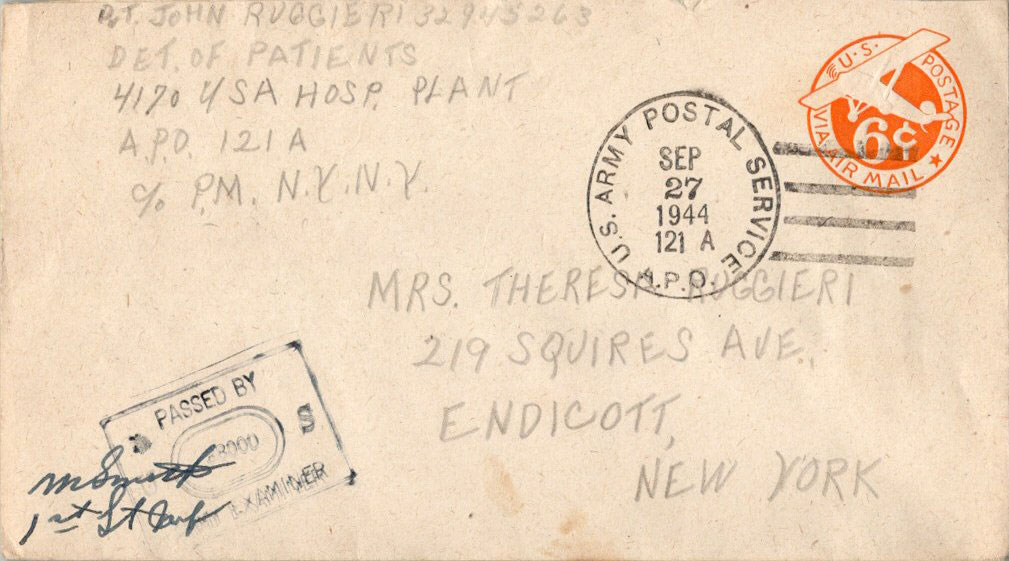 PVT. JOHN RUGGIERI 32945263
DET. OF PATIENTS
4170 USA HOSP. PLANT
A.P.O. 121 A
c/o P.M. N.Y. N.Y.
U.S. POSTAGE
6¢
VIA AIR MAIL
U.S. ARMY POSTAL SERVICE
SEP
27
1944
121 A
A.P.O.
MRS. THERESA RUGGIERI
219 SQUIRES AVE.,
ENDICOTT,
NEW YORK
PASSED BY
S
EXAMINER
1st Lt